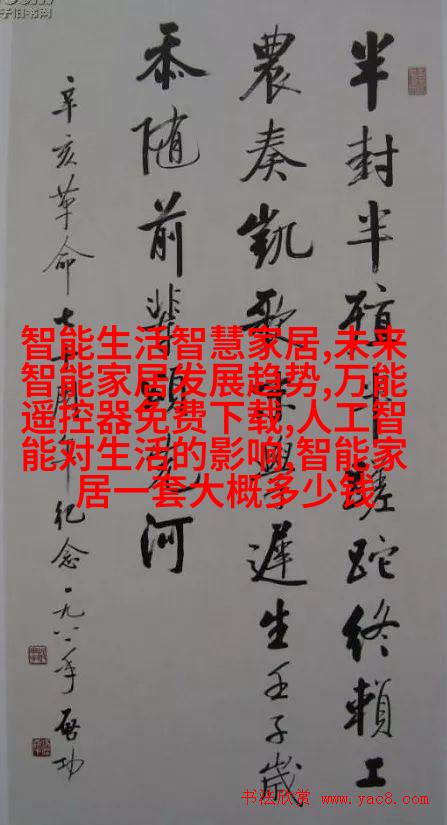 半封半殖半蹉跎终賴工
農奏凱歌末學遲生壬子歲
忝随前輩河
辛亥革命七十周年纪念一九八一年 启功
智能生活智慧家居,未来
智能家居发展趋势,万能
遥控器免费下载,人工智
能对生活的影响,智能家
居一套大概多少钱
书法欣赏 www.yac8.com